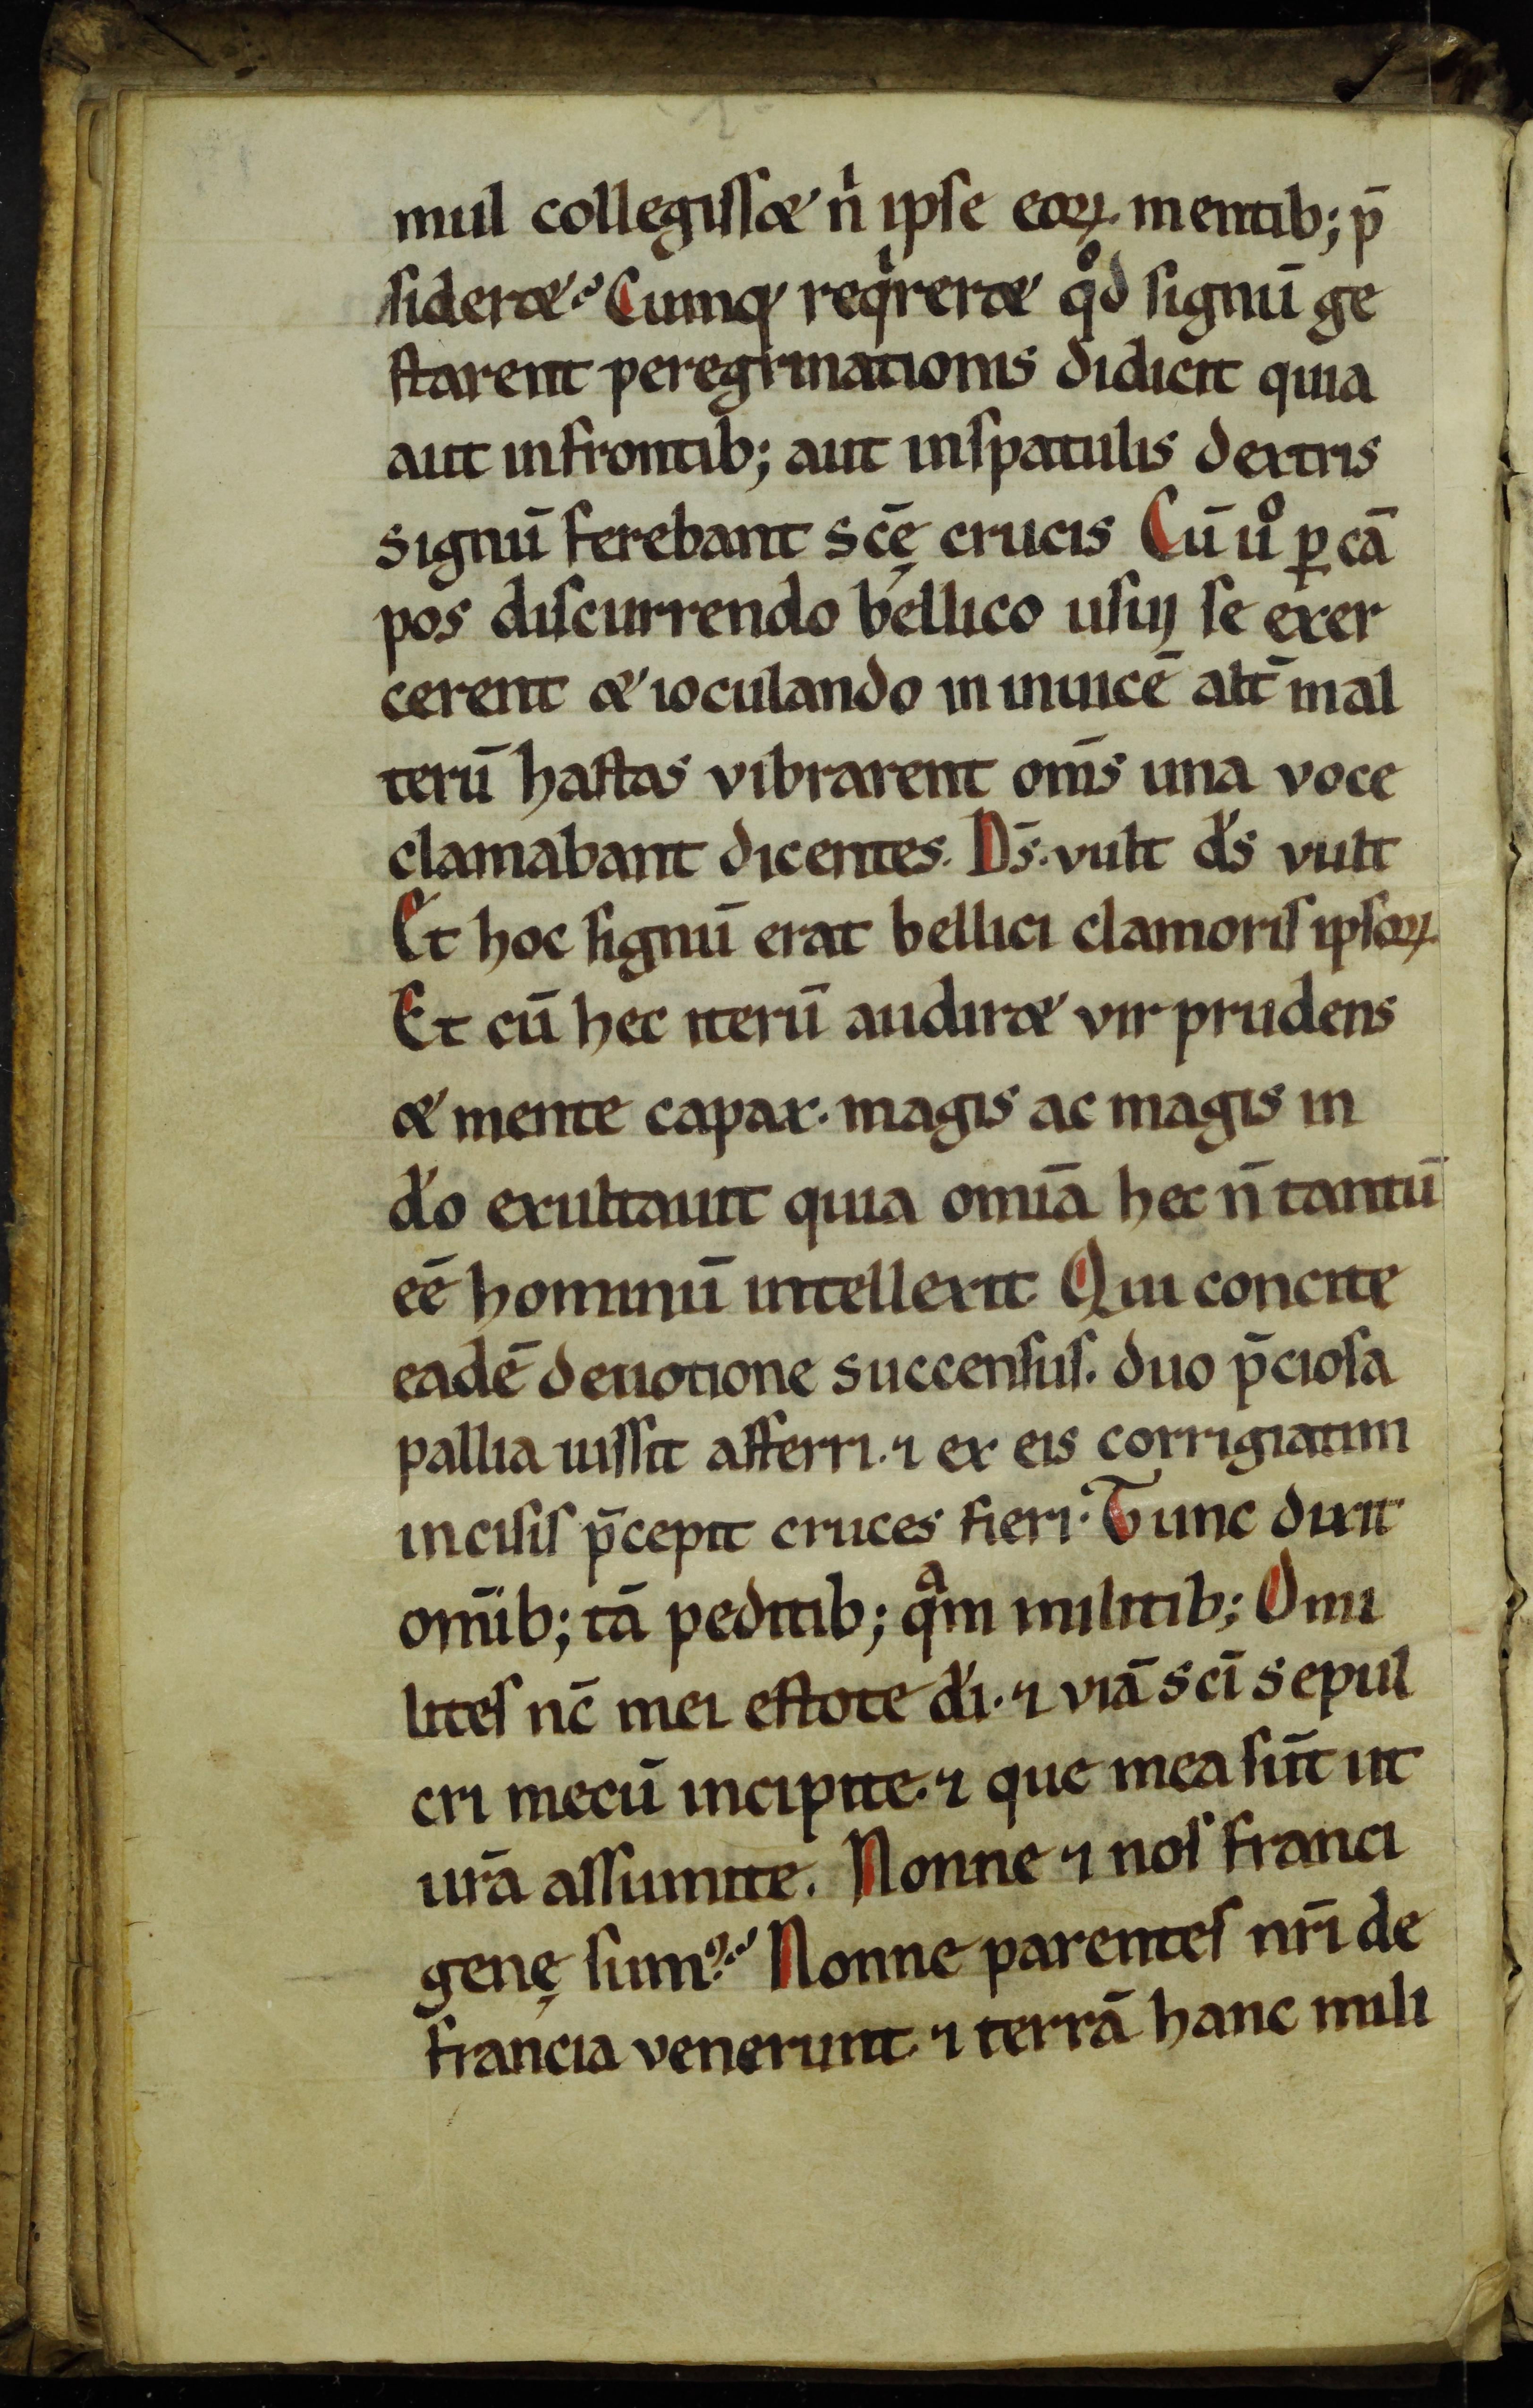 mul collegisset nͥ ipse eoꝝ mentib; p̄
sideret? Cumq; reqͥreret qͦd signū ge
starent peregrinationis didicit quia
aut infrontib; aut inspatulis dextris
signū ferebant sc̄ę crucis Cū uͦ ꝑ cā
pos discurrendo bellico usui se exer
cerent et ioculando in inuicē alt̄ inal
terū hastas vibrarent om̄s una voce
clamabant dicentes. Ds̄. vult ds̄ vult
Et hoc signū erat bellici clamoris ipsoꝝ.
Et cū hec iterū audiret vir prudens
et mente capax. magis ac magis in
do̅ exultauit quia omīa hec n̄ tantū
eē hominū intellexit. Qui concite
eadē deuotione succensus. duo p̄ciosa
pallia iussit afferri. ⁊ ex eis corrigiatim
incisis p̄cepit cruces fieri. Tunc dixit
omīb; tā peditib; qͣm militib; O mi
lites nc̄ mei estote di̅. ⁊ viā sc̄i sepul
cri mecū incipite. ⁊ que mea sūt ut
ur̄a assumite. Nonne ⁊ nos franci
genę sumꝰ? Nonne parentes nr̄i de
francia venerunt. ⁊ terrā hanc mili